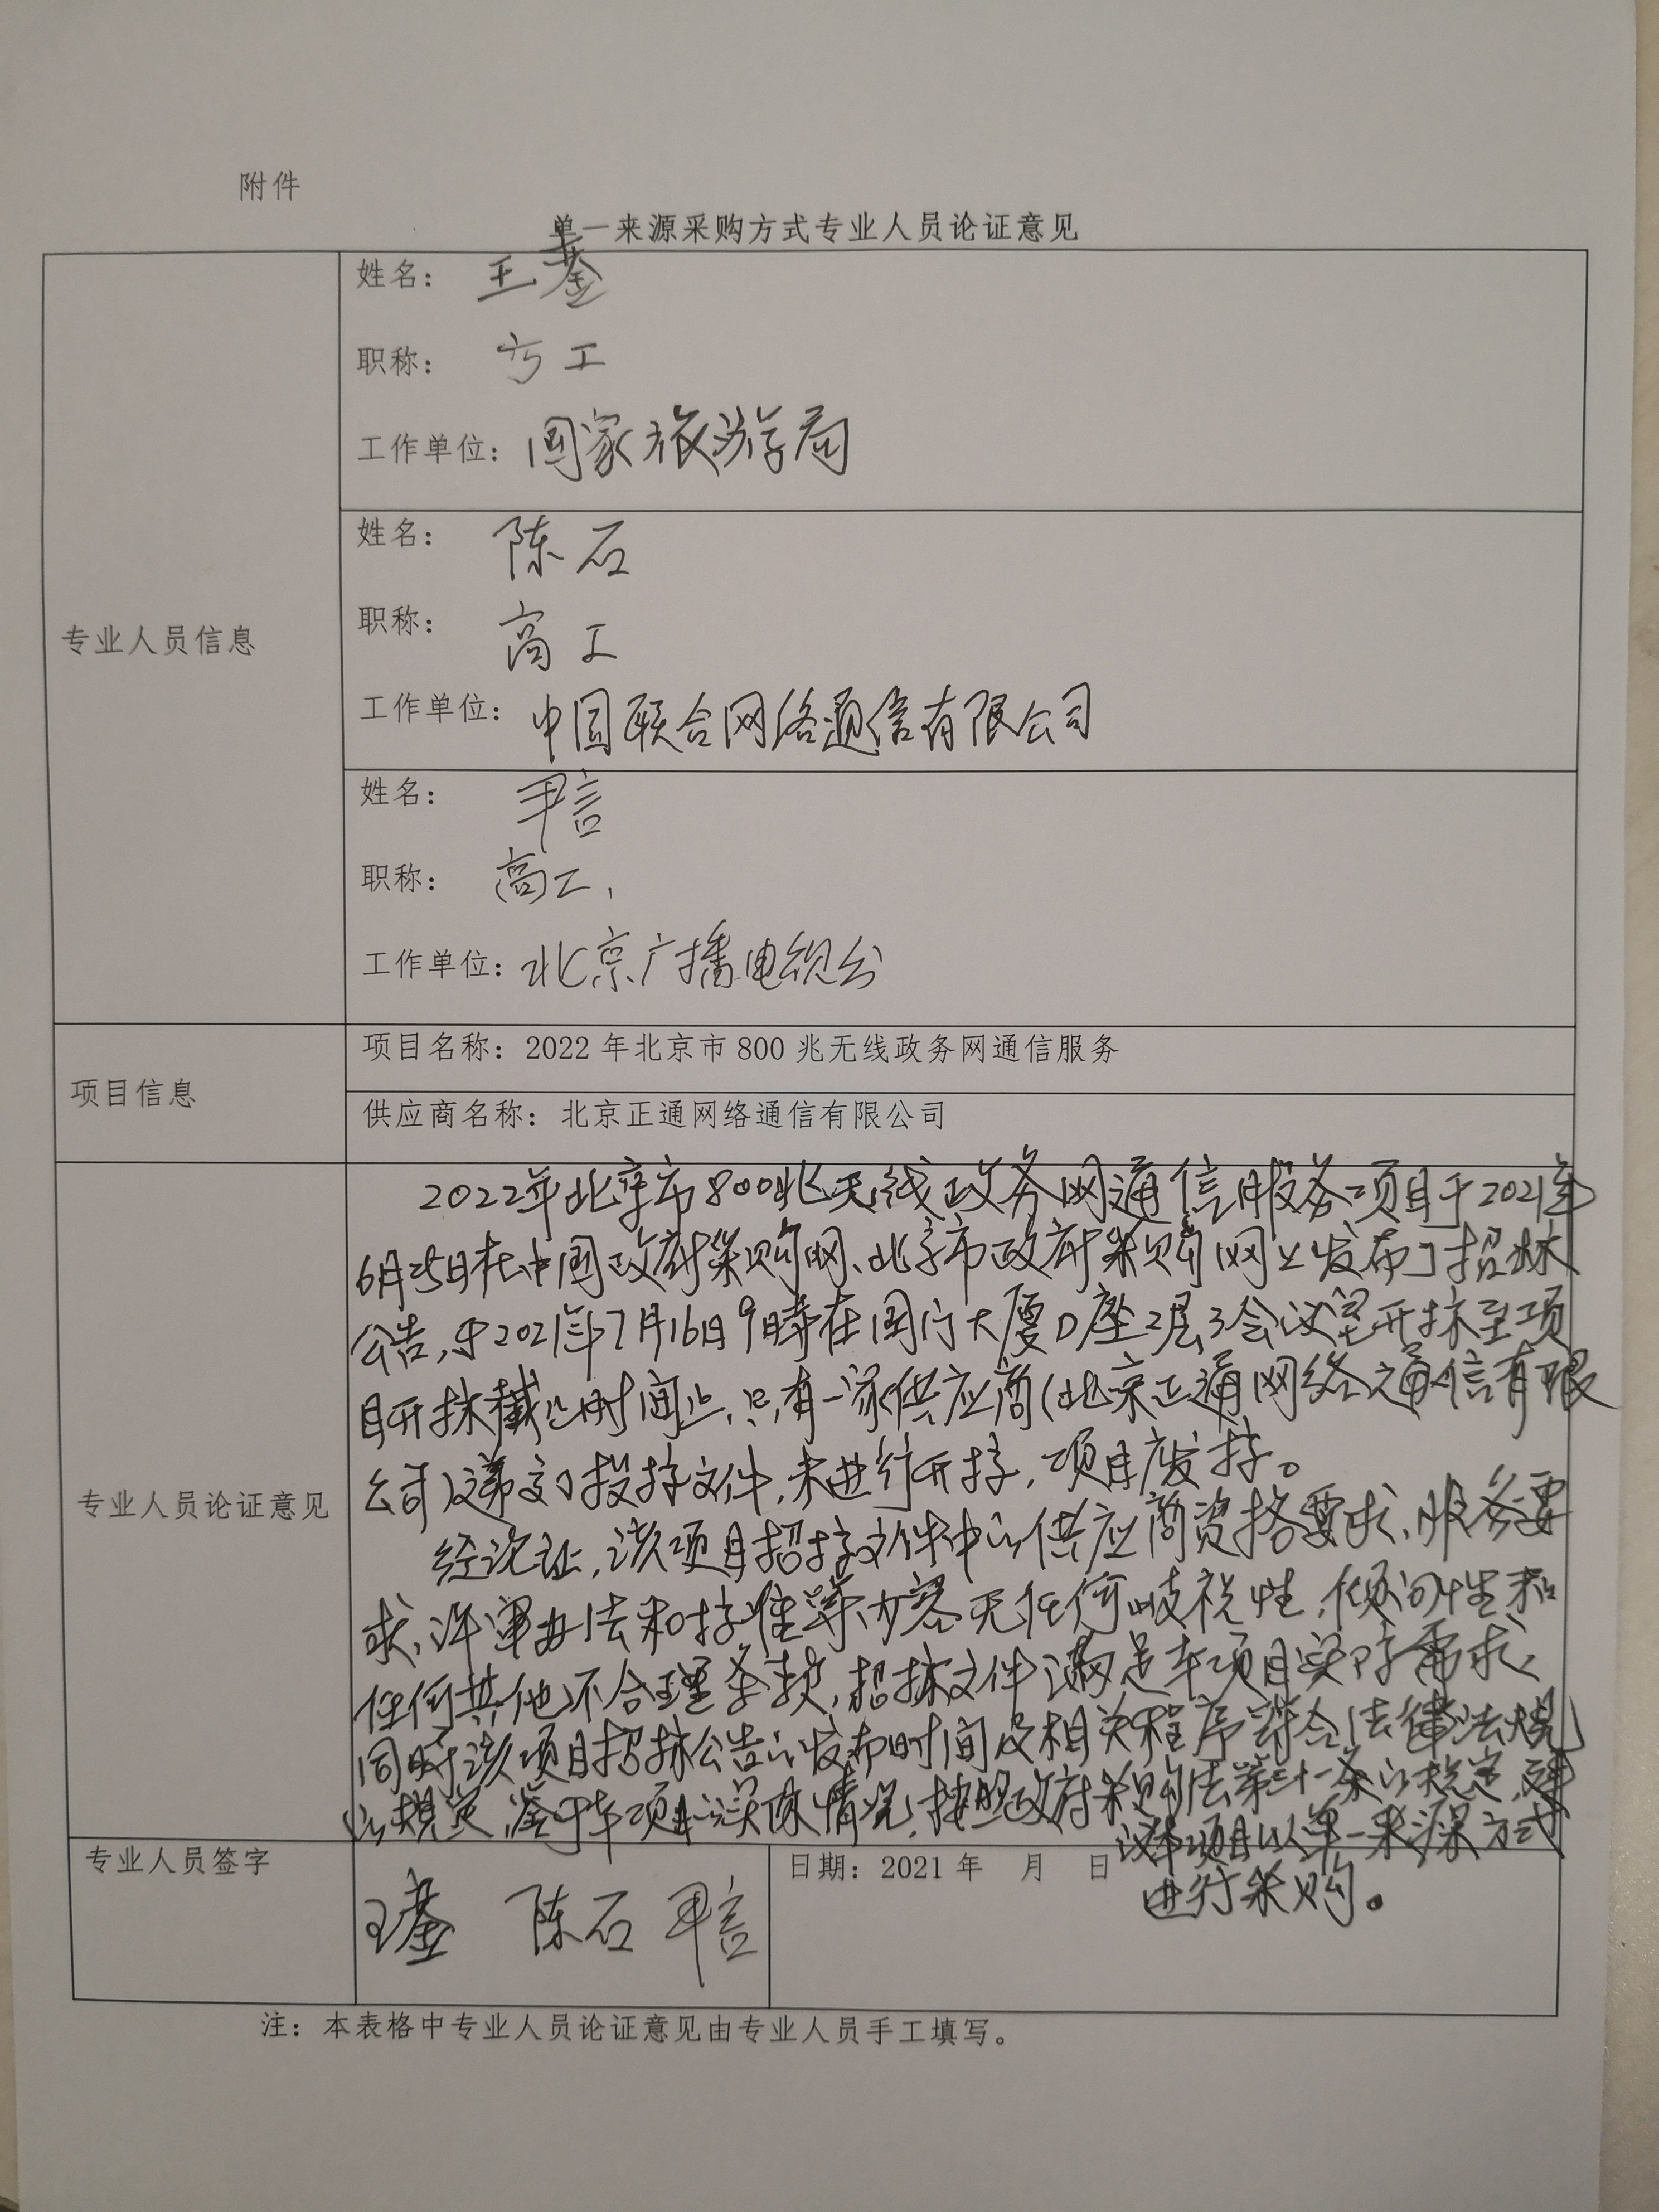 附件
单一来源采购方式专业人员论证意见
专业人员信息
姓名：王鏊
职称：高工
工作单位：国家旅游局
姓名：陈石
职称：高工
工作单位：中国联合网络通信有限公司
姓名：尹言
职称：高工
工作单位：北京广播电视台
项目信息
项目名称：2022年北京市800兆无线政务网通信服务
供应商名称：北京正通网络通信有限公司
专业人员论证意见
2022年北京市800兆无线政务网通信服务项目于2021年
6月25日在中国政府采购网、北京市政府采购网上发布了招标
公告，于2021年7月16日9时在国门大厦D座2层3会议室开标至项
目开标截止时间止，只有一家供应商（北京正通网络通信有限
公司）递交了投标文件，未进行开标，项目废标。
经论证，该项目招标文件中的供应商资格要求、服务要
求、评审办法和标准等内容无任何歧视性，倾向性和
任何其他不合理条款，招标文件满足本项目实际需求，
同时该项目招标公告的发布时间及相关程序符合法律法规
的规定，鉴于本项目的具体情况，按照政府采购法第三十一条的规定，建
议本项目以单一来源方式
进行采购。
专业人员签字
王鏊 陈石 尹言
日期：2021年 月 日
注：本表格中专业人员论证意见由专业人员手工填写。